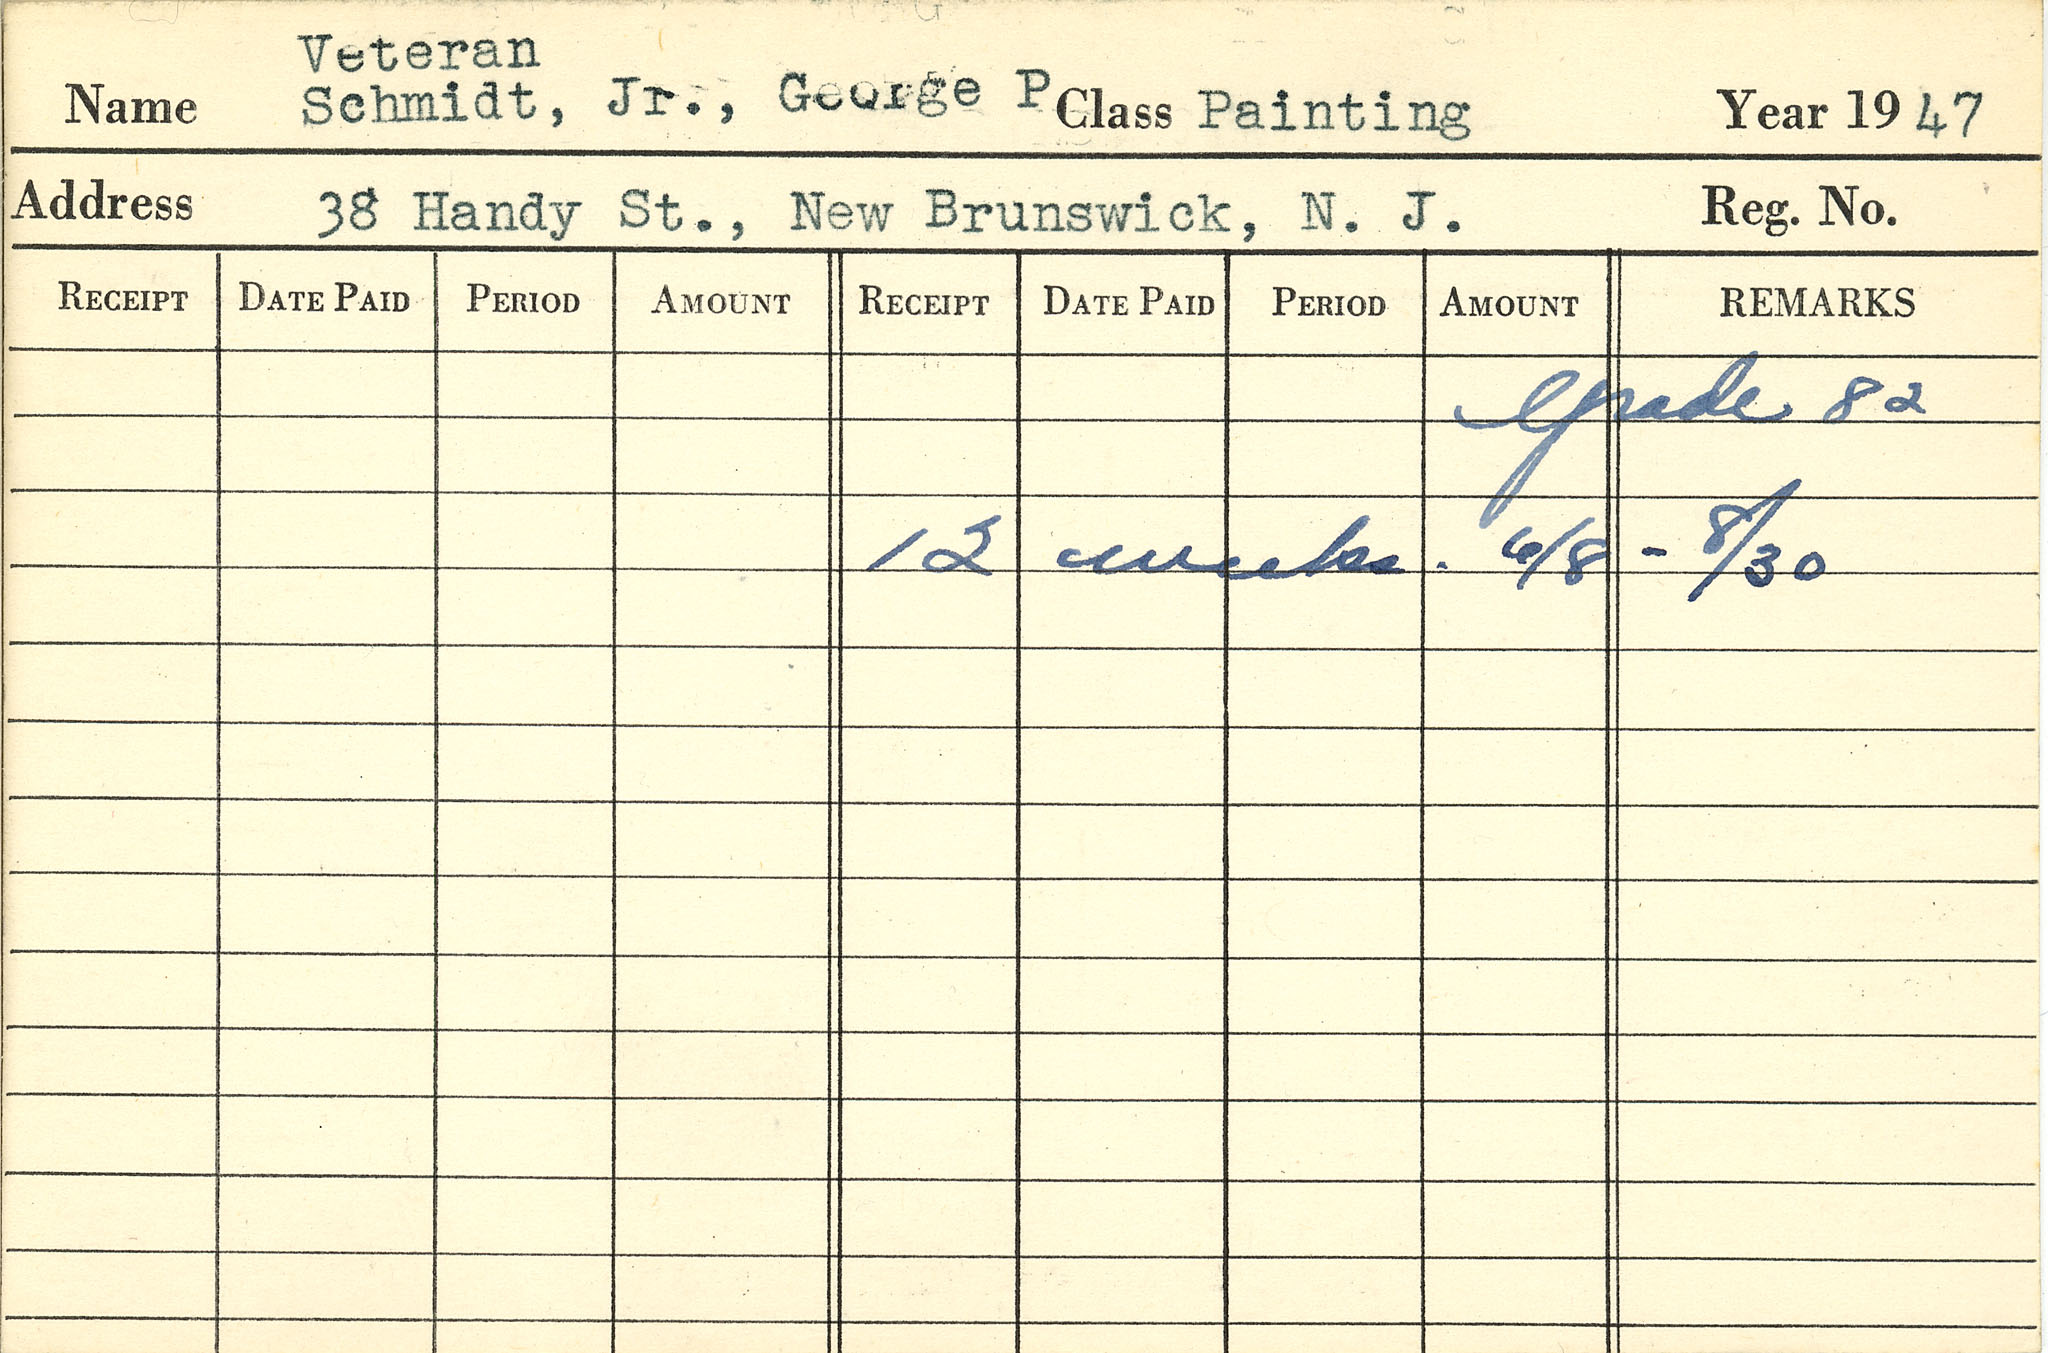 Veteran
Name Schmidt, Jr., George P Class Painting Year 1947
Address 38 Handy St., New Brunswick, N. J. Reg. No.
RECEIPT DATE PAID PERIOD AMOUNT RECEIPT DATE PAID PERIOD AMOUNT REMARKS
Grade 82
12 weeks. 6/8 - 8/30